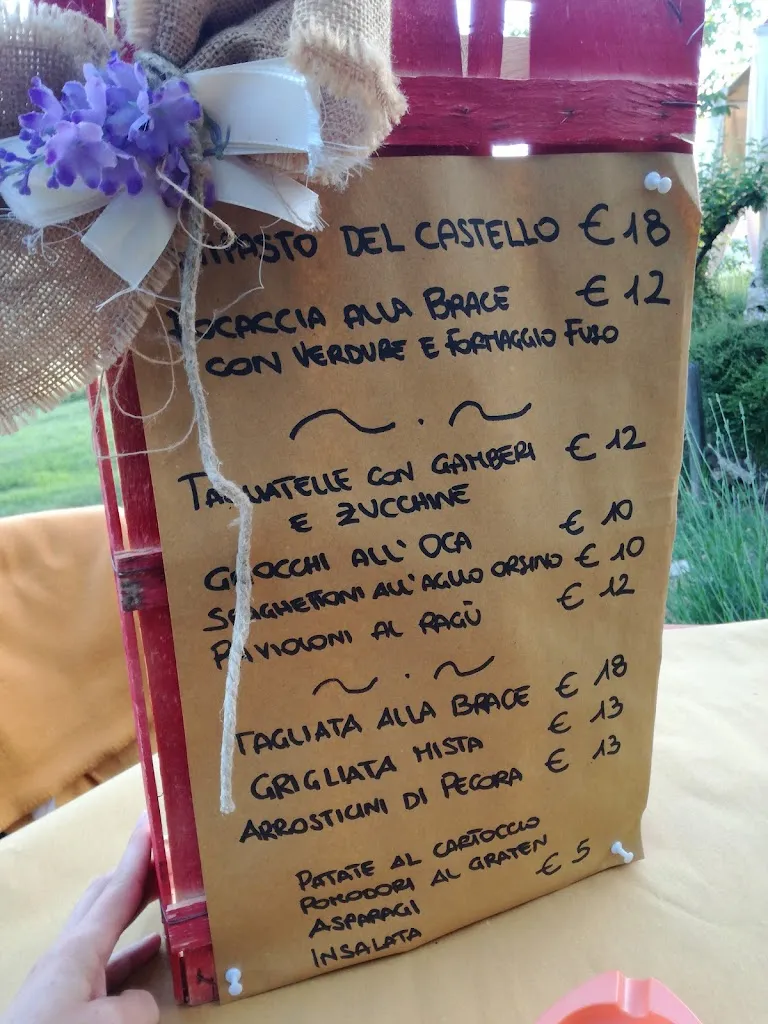 DEL CASTELLO € 18
FOCACCIA ALLA BRACE € 12
CON VERDURE E FORMAGGIO FUSO
TAGLIATELLE CON GAMBERI € 12
E ZUCCHINE
GNOCCHI ALL' OCA € 10
SPAGHETTONI ALL'AGLIO ORSINO € 10
RAVIOLONI AL RAGÙ € 12
TAGLIATA ALLA BRACE € 18
GRIGLIATA MISTA € 13
ARROSTICINI DI PECORA € 13
PATATE AL CARTOCCIO
POMODORI AL GRATEN
ASPARAGI € 5
INSALATA